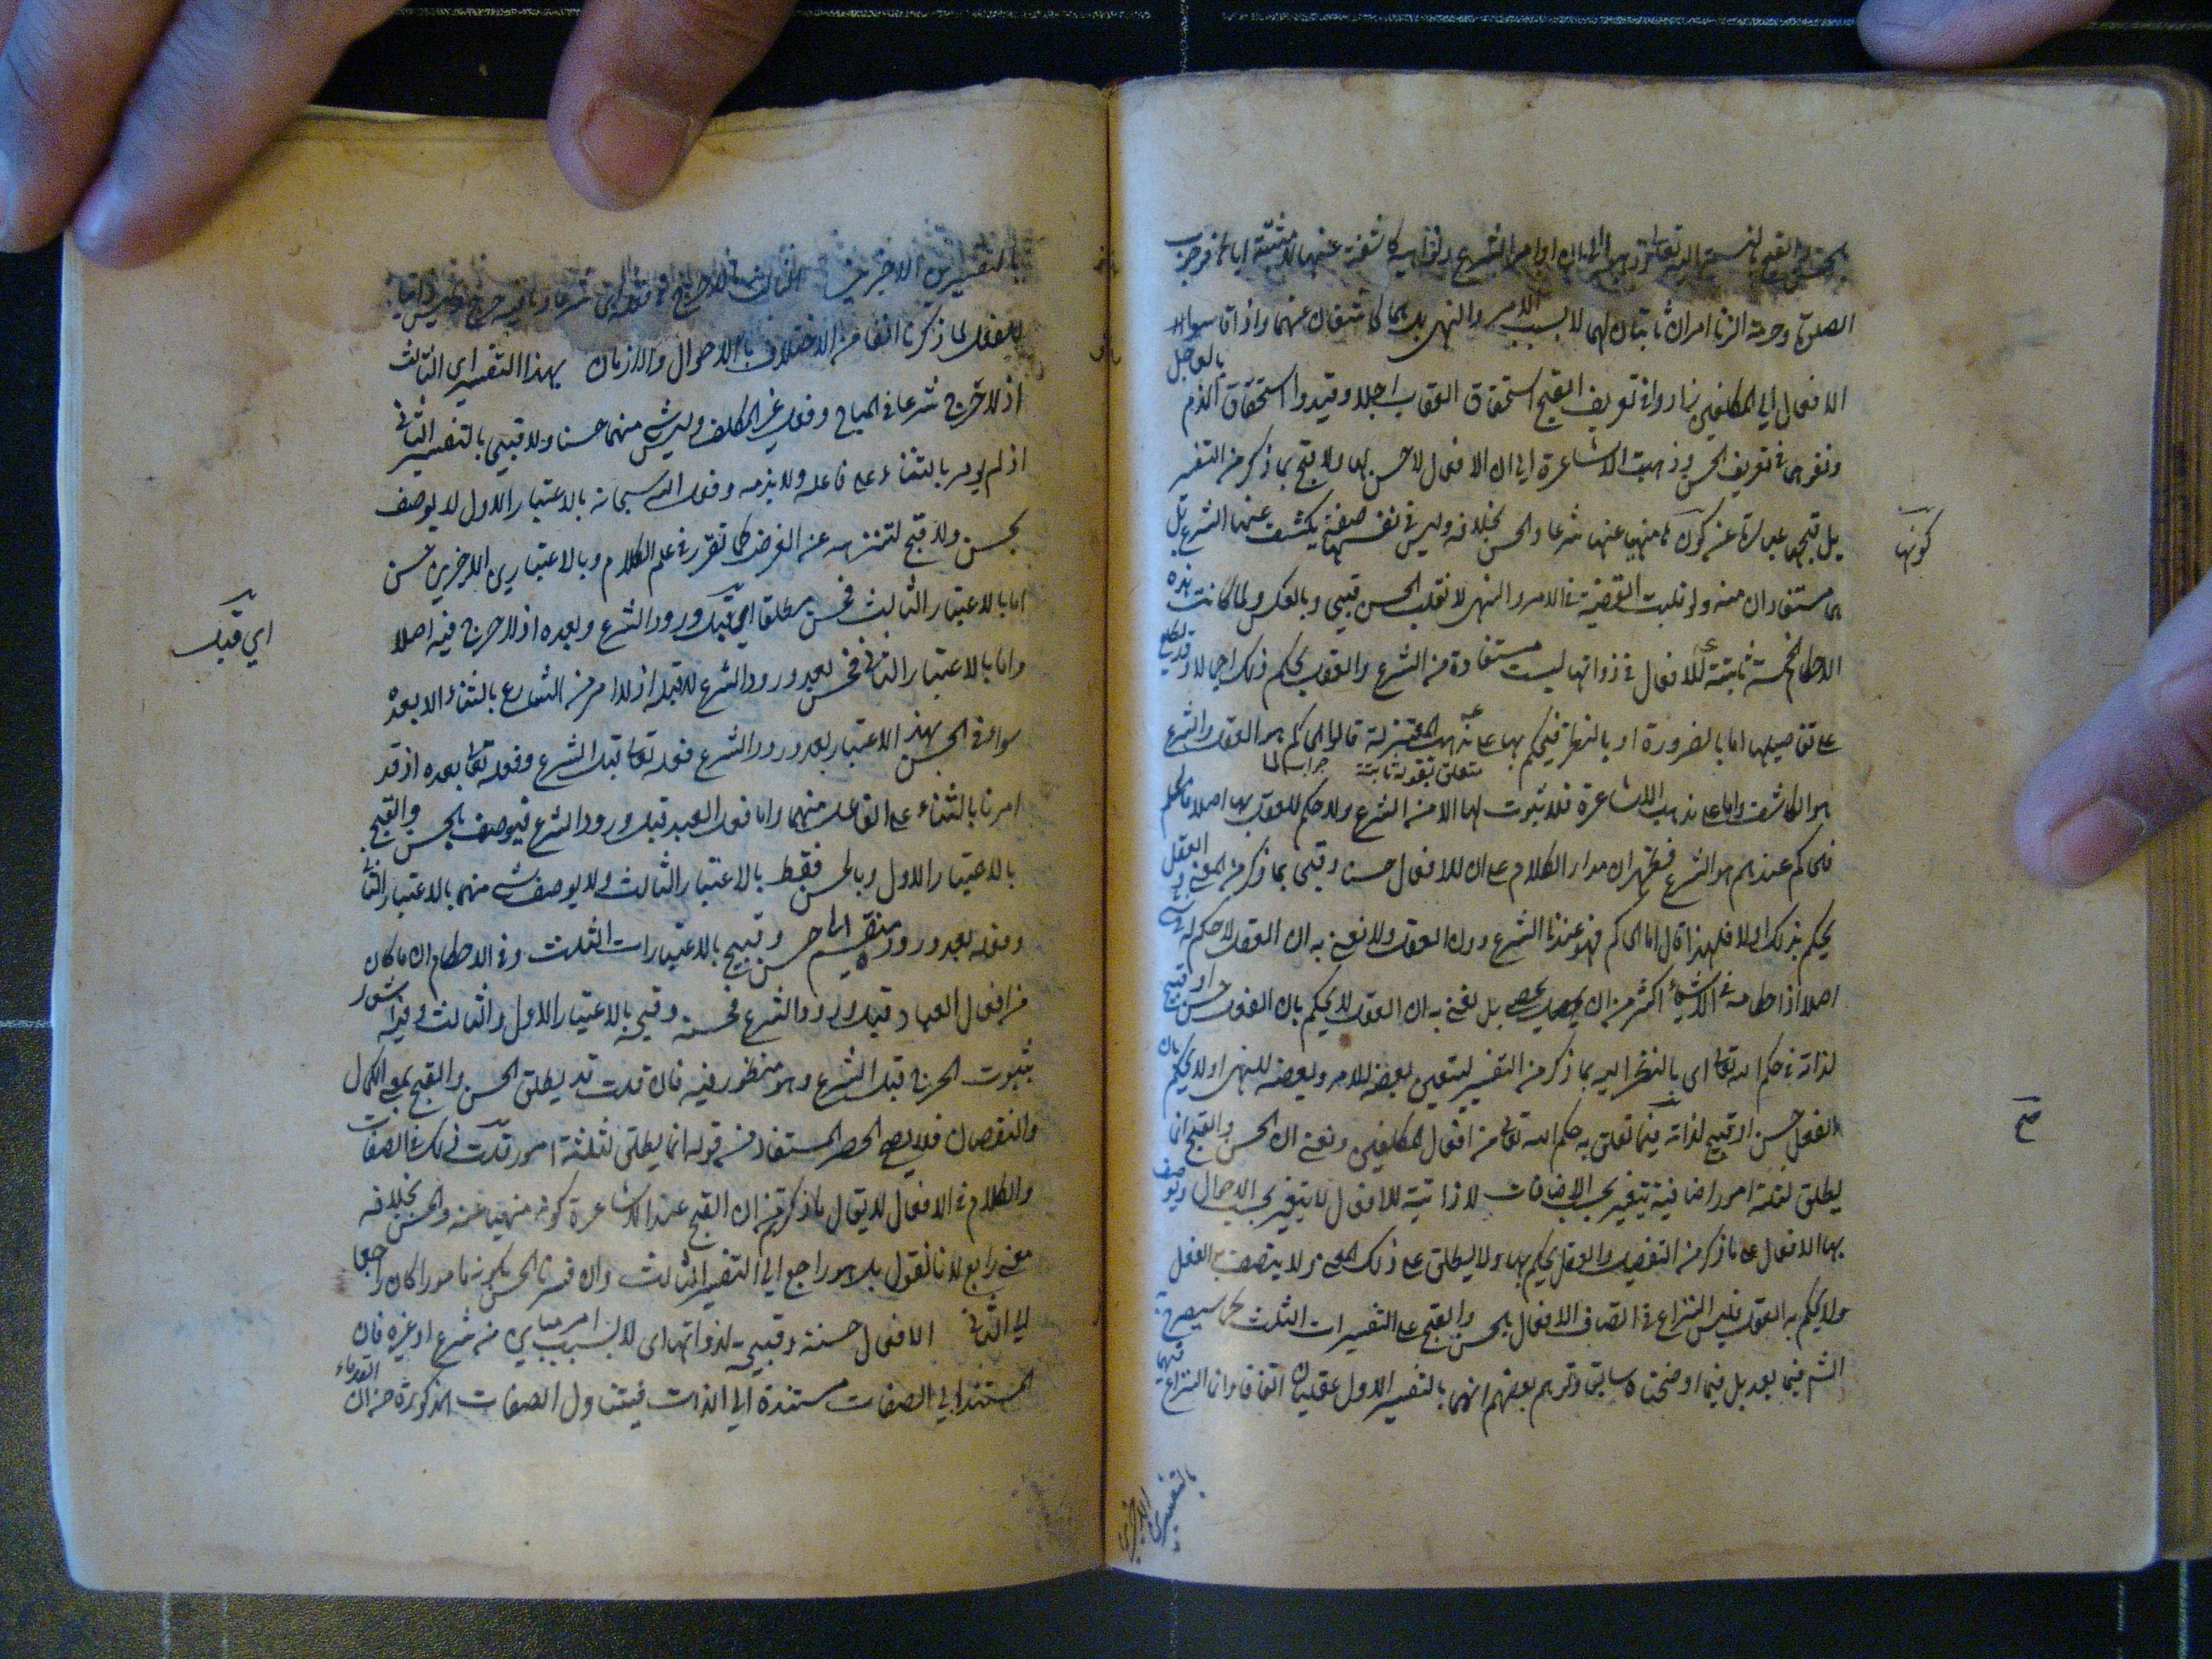 الصلوة وحرمة الزنا امران ثابتان لهما لا بسبب الامر والنهي بل هما كاشفان عنهما واذ
الافعال الى المكلفين زادوا في تعريف القبيح استحقاق العقاب اجلا وقيدوا استحقاق الذم بالعاجل
ونفوهما في تعريف الحسن وذهبت الاشاعرة الى ان الافعال لا حسن لها ولا قبح بما ذكر من التفسير
بل قبحها عبارة عن كونها منهيا عنها شرعا والحسن بخلافه وليس في نفسها صفة يكشف عنها الشرع بل
هما مستفادان منه ولو قلبت القضية في الامر والنهي لانقلب الحسن قبيحا وبالعكس ولما كانت هذه
الاحكام الخمسة ثابتة للافعال في ذواتها ليست مستفادة من الشرع والعقل يحكم بذلك اجمالا وقد يطلع
على تفاصيلها اما بالضرورة او بالنظر فيحكم بها على مذهب المعتزلة قالوا الحاكم هو العقل والشرع
متعلق بقوله ثابتة جواب لما
هو الكاشف واما على مذهب الاشاعرة فلا ثبوت لها الا من الشرع ولا حكم للعقل بها اصلا
فالحاكم عندهم هو الشرع فظهر ان مدار الكلام على ان للافعال حسنا وقبحا بما ذكر من المعنى
يحكم بذلك او لا فلهذا قال اما الحاكم فهو عندنا الشرع دون العقل ولا نعني به ان العقل لا حكم له
اصلا اذ احكامه في الاشياء اكثر من ان يحصى بل نعني به ان العقل لا يحكم بان الفعل حسن او قبيح
لذاته في حكم الله تعالى اي بالنظر اليه بما ذكر من التفسير ليتعين بعضه للامر وبعضه للنهي او لا يحكم بان
الفعل حسن او قبيح لذاته فيما تعلق به حكم الله تعالى من افعال المكلفين ونعني ان الحسن والقبح انما
يطلق لثلثة امور اضافية تتغير بحسب الاضافات لا ذاتية للافعال لا يتغير بحسب الاحوال ويوصف
بها الافعال على ما ذكر من التفصيل والعقل يحكم بها ولا يطلق على ذلك المعنى ولا يتصف به الفعل
ولا يحكم به العقل فليس النزاع في اتصاف الافعال بالحسن والقبح على التفسيرات الثلث كما سيصرح به
الشم فيما بعد بل فيما اوضحناه سابقا وتوهم بعضهم انهما بالتفسير الاول عقليان اتفاقا وان النزاع فيهما
بالتفسيرين الاخيرين
كونها
صح
بالتفسيرين الاخيرين
للفعل لما ذكرنا انفا من الاختلاف بالاحوال والازمان بهذا التفسير اي الثالث
اذ لا حرج شرعا في المباح وفعل غير المكلف وليس شيء منهما حسنا ولا قبيحا بالتفسير الثاني
اذ لم يؤمر بالثناء على فاعله ولا بذمه وفعل الله سبحانه بالاعتبار الاول لا يوصف
بحسن ولا قبح لتنزهه عن الغرض كما تقرر في علم الكلام وبالاعتبارين الاخيرين حسن
اما بالاعتبار الثالث فحسن مطلقا اي قبل ورود الشرع وبعده اذ لا حرج فيه اصلا
واما بالاعتبار الثاني فحسن بعد ورود الشرع لا قبله اذ لا امر من الشارع بالثناء الا بعده
سواء في الحسن بهذا الاعتبار بعد ورود الشرع فعله تعالى قبل الشرع وفعله تعالى بعده اذ قد
امرنا بالثناء على الفاعل منهما واما فعل العبد قبل ورود الشرع فيوصف بالحسن والقبح
بالاعتبار الاول وبالحسن فقط بالاعتبار الثالث ولا يوصف شيء منهما بالاعتبار الثاني
وفعله بعد ورود ينقسم الى حسن وقبيح بالاعتبارات الثلث وفي الاحكام ان ما كان
من افعال العباد قبل ورود الشرع فحسنه وقبحه بالاعتبار الاول والثالث وفيه اشعار
بثبوت الحرج قبل الشرع وهو منظور فيه فان قلت قد يطلق الحسن والقبح بمعنى الكمال
والنقصان فلا يصح الحصر المستفاد من قوله انما يطلق لثلثة امور قلت ذلك في الصفات
والكلام في الافعال لا يقال ما ذكرتم من ان القبح عند الاشاعرة كونه منهيا عنه والحسن بخلافه
معنى رابع لانا نقول بل هو راجع الى التفسير الثالث وان فسرنا الحسن بكونه مامورا كان راجعا
الى الثاني الافعال حسنة وقبيحة لذواتها اي لا بسبب امر مباين من شرع او غيره فان
المستند الى الصفات مستندة الى الذات فيتناول الصفات المذكورة من ان القدماء
اي قبل